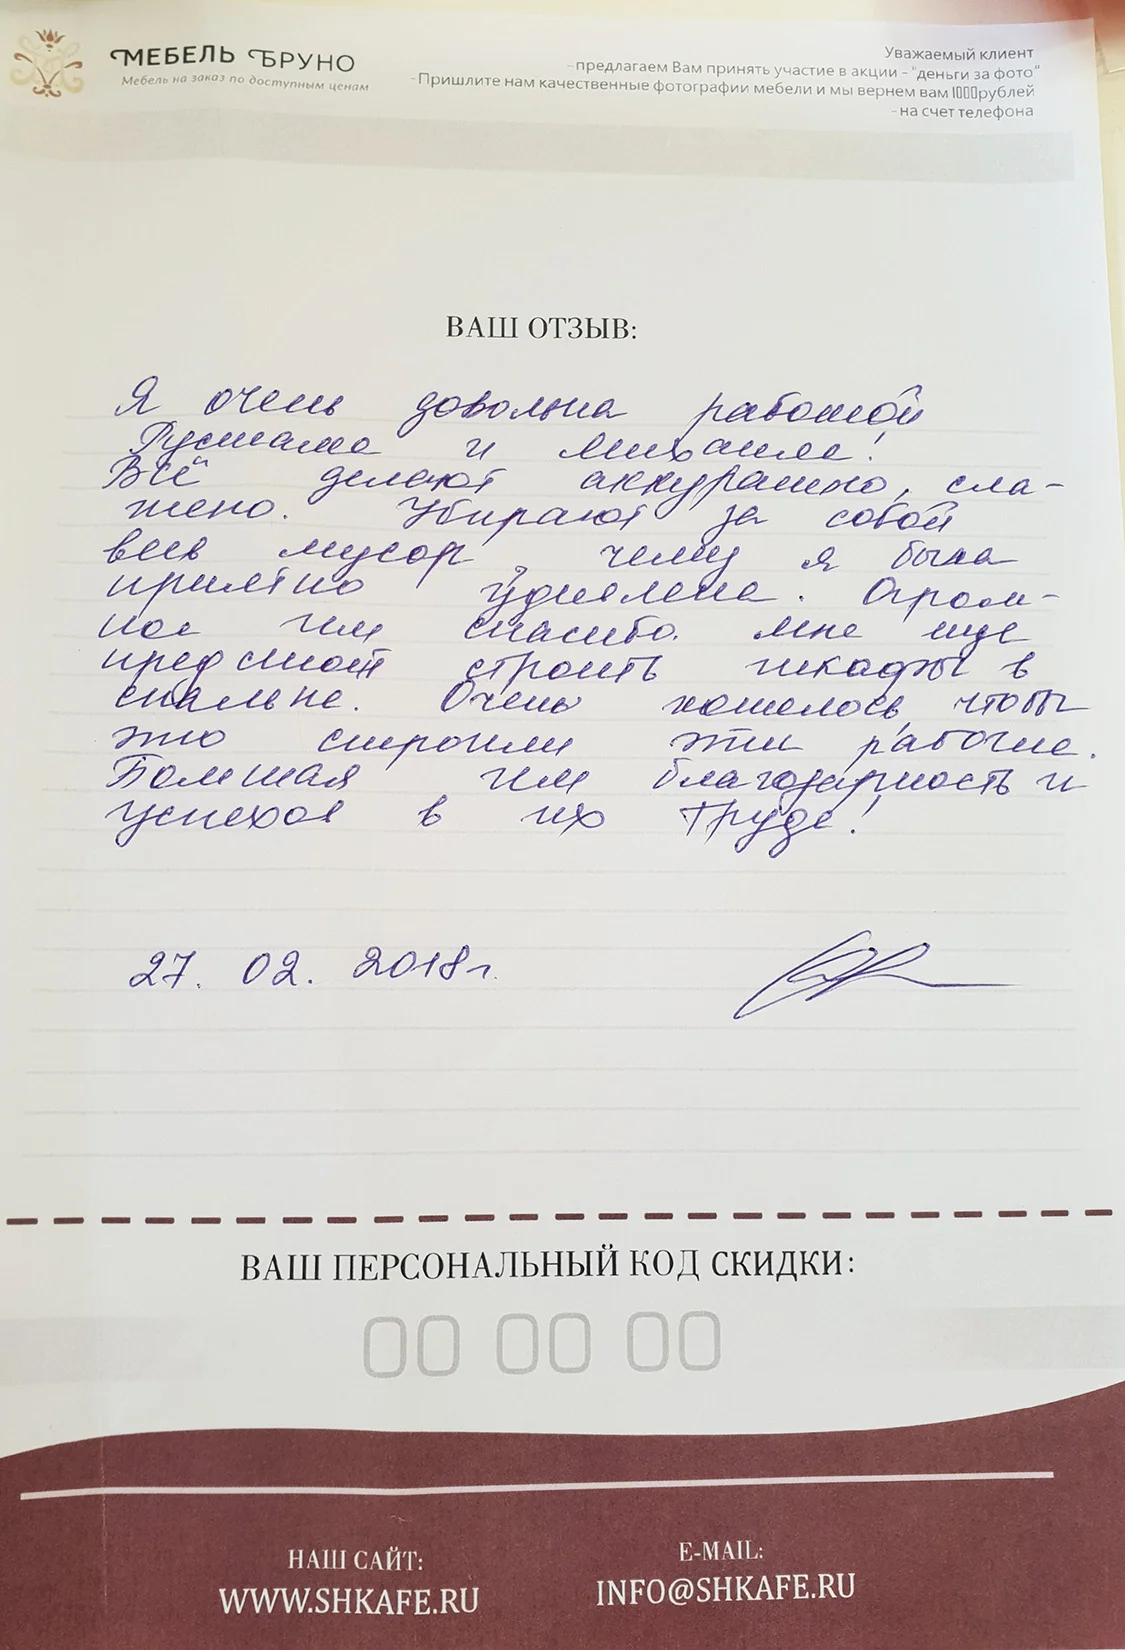 МЕБЕЛЬ БРУНО
Мебель на заказ по доступным ценам
Уважаемый клиент
- предлагаем Вам принять участие в акции - "деньги за фото"
- Пришлите нам качественные фотографии мебели и мы вернем вам 1000рублей
- на счет телефона
ВАШ ОТЗЫВ:
Я очень довольна работой
Рустама и Михаила!
Всё делают аккуратно, сла-
жено. Убирают за собой
весь мусор, чему я была
приятно удивлена. Огром-
ное им спасибо. Мне ещё
предстоит строить шкафы в
спальне. Очень хотелось, чтобы
это строили эти рабочие.
Большая им благодарность и
успехов в их труде!
27. 02. 2018г.
ВАШ ПЕРСОНАЛЬНЫЙ КОД СКИДКИ:
00 00 00
НАШ САЙТ:
WWW.SHKAFE.RU
E-MAIL:
INFO@SHKAFE.RU